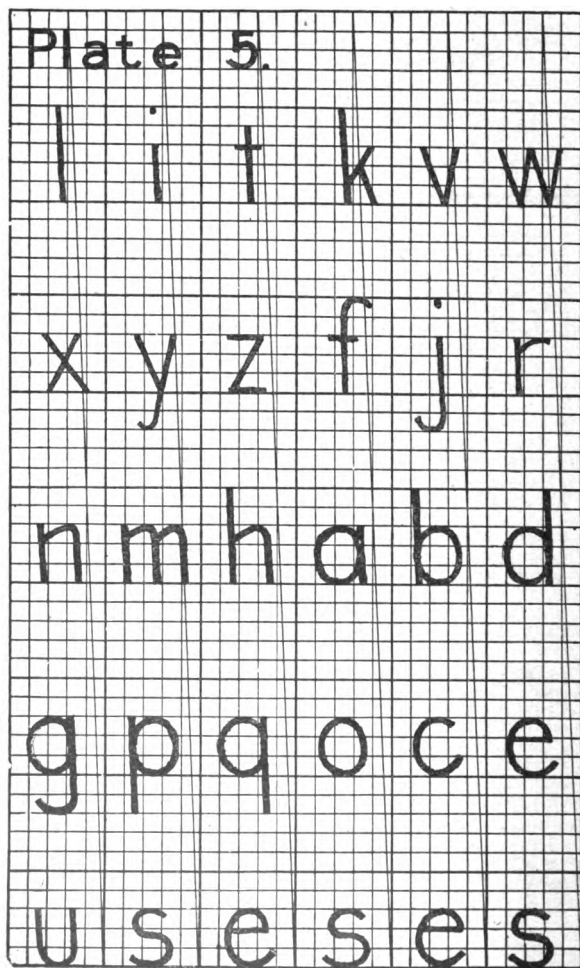 Plate 5.
l i t k v w
x y z f j r
n m h a b d
g p q o c e
u s e s e s